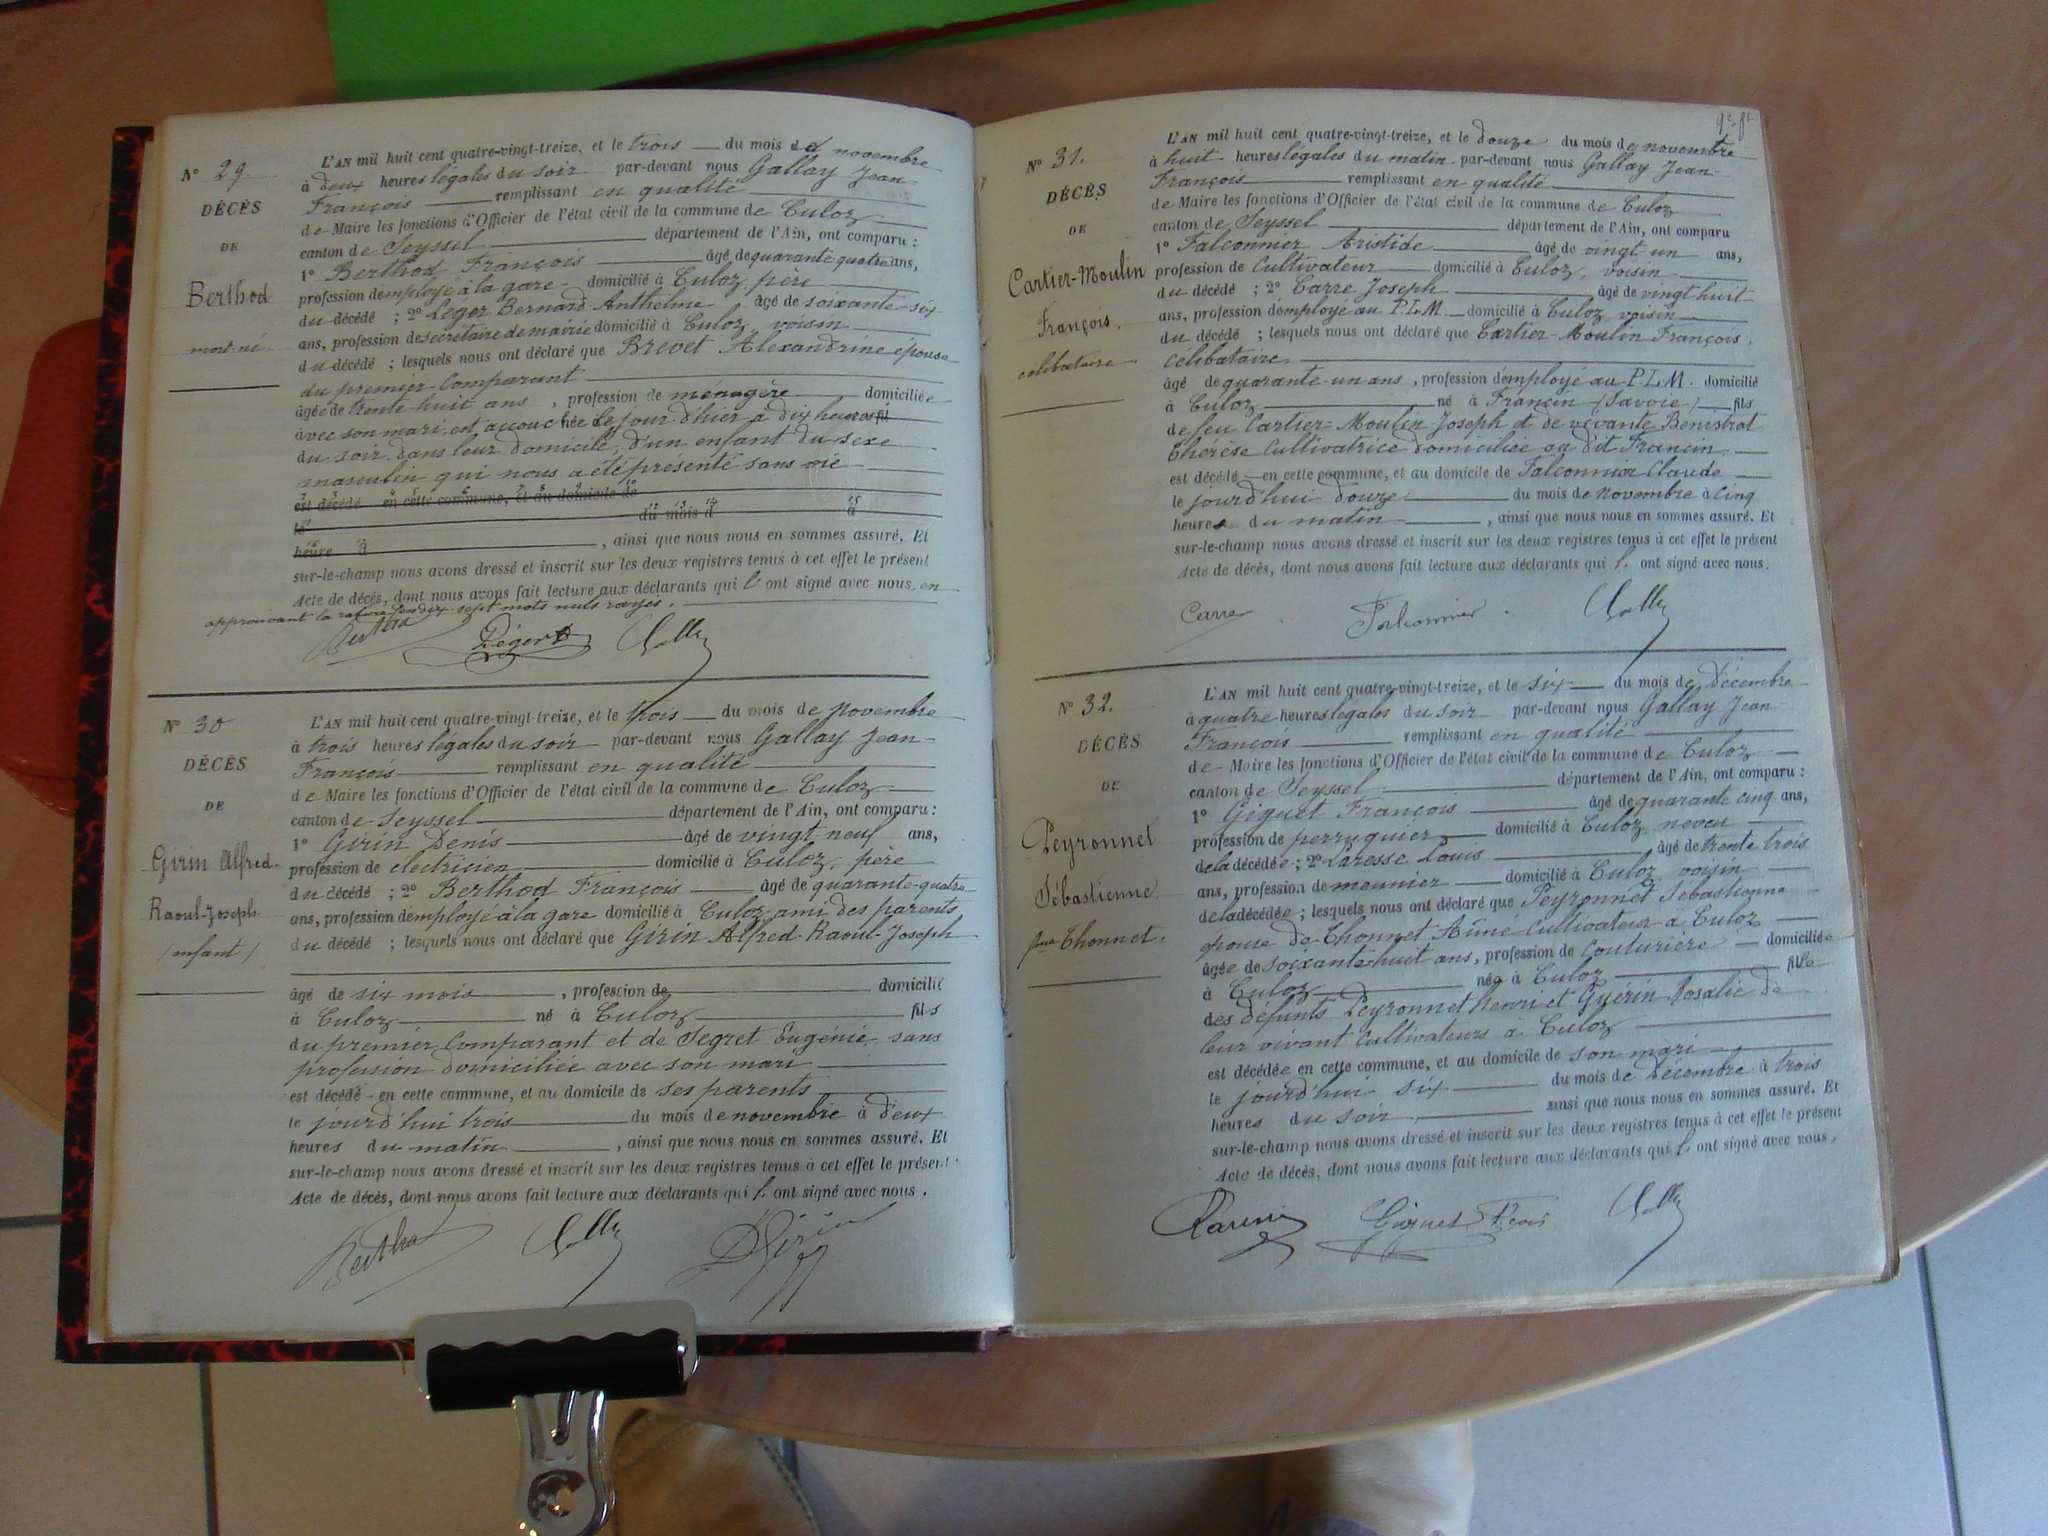 N° 29
DÉCÈS
DE
Berthod
mort-né
L'AN mil huit cent quatre-vingt-treize, et le trois du mois de novembre
à deux heures légales du soir par-devant nous Gallay Jean-
François remplissant en qualité
de Maire les fonctions d'Officier de l'état civil de la commune de Culoz
canton de Seyssel département de l'Ain, ont comparu :
1° Berthod François âgé de quarante quatre ans,
profession d'employé à la gare domicilié à Culoz, père
du décédé ; 2° Léger Bernard Anthelme âgé de soixante-six
ans, profession de secrétaire de mairie domicilié à Culoz, voisin
du décédé ; lesquels nous ont déclaré que Brevet Alexandrine épouse
du premier Comparant
âgée de trente huit ans , profession de ménagère domiciliée
avec son mari est accouchée le jour d'hier à dix heures
du soir dans leur domicile, d'un enfant du sexe
masculin qui nous a été présenté sans vie
est décédé en cette commune, et au domicile de
le du mois d à
heure d , ainsi que nous nous en sommes assuré. Et
sur-le-champ nous avons dressé et inscrit sur les deux registres tenus à cet effet le présent
Acte de décès, dont nous avons fait lecture aux déclarants qui l' ont signé avec nous, en
approuvant la rature de dix-sept mots nuls rayés.
Berthod Léger Gallay
N° 30
DÉCÈS
DE
Girin Alfred-
Raoul-Joseph
(enfant)
L'AN mil huit cent quatre-vingt-treize, et le trois du mois de novembre
à trois heures légales du soir par-devant nous Gallay Jean-
François remplissant en qualité
de Maire les fonctions d'Officier de l'état civil de la commune de Culoz
canton de Seyssel département de l'Ain, ont comparu :
1° Girin Denis âgé de vingt neuf ans,
profession de électricien domicilié à Culoz, père
du décédé ; 2° Berthod François âgé de quarante-quatre
ans, profession d'employé à la gare domicilié à Culoz, ami des parents
du décédé ; lesquels nous ont déclaré que Girin Alfred-Raoul-Joseph
âgé de six mois , profession de domicilié
à Culoz né à Culoz fils
du premier Comparant et de Segret Eugénie sans
profession domiciliée avec son mari
est décédé en cette commune, et au domicile de ses parents
le jourd'hui trois du mois de novembre à deux
heures du matin , ainsi que nous nous en sommes assuré. Et
sur-le-champ nous avons dressé et inscrit sur les deux registres tenus à cet effet le présent
Acte de décès, dont nous avons fait lecture aux déclarants qui l' ont signé avec nous.
Berthod Gallay DGirin
N° 31.
DÉCÈS
DE
Cartier-Moulin
François.
célibataire
L'AN mil huit cent quatre-vingt-treize, et le douze du mois de novembre
à huit heures légales du matin par-devant nous Gallay Jean-
François remplissant en qualité
de Maire les fonctions d'Officier de l'état civil de la commune de Culoz
canton de Seyssel département de l'Ain, ont comparu
1° Falconnier Aristide âgé de vingt un ans,
profession de Cultivateur domicilié à Culoz, voisin
du décédé ; 2° Carre Joseph âgé de vingt huit
ans, profession d'employé au P.L.M. domicilié à Culoz voisin
du décédé ; lesquels nous ont déclaré que Cartier-Moulin François,
célibataire
âgé de quarante-un ans , profession d'employé au P.L.M. domicilié
à Culoz né à Francin (Savoie) fils
de feu Cartier-Moulin Joseph et de vivante Benistrot
Thérèse Cultivatrice domiciliée au dit Francin,
est décédé en cette commune, et au domicile de Falconnier Claude
le jourd'hui douze du mois de novembre à cinq
heures du matin , ainsi que nous nous en sommes assuré. Et
sur-le-champ nous avons dressé et inscrit sur les deux registres tenus à cet effet le présent
Acte de décès, dont nous avons fait lecture aux déclarants qui l' ont signé avec nous.
Carre Falconnier Gallay
N° 32.
DÉCÈS
DE
Peyronnet
Sébastienne
fme Thonnet.
L'AN mil huit cent quatre-vingt-treize, et le six du mois de Décembre
à quatre heures légales du soir par-devant nous Gallay Jean-
François remplissant en qualité
de Maire les fonctions d'Officier de l'état civil de la commune de Culoz
canton de Seyssel département de l'Ain, ont comparu :
1° Giguet François âgé de quarante cinq ans,
profession de perruquier domicilié à Culoz neveu
de la décédée ; 2° Laresse Louis âgé de trente trois
ans, profession de meunier domicilié à Culoz voisin
de la décédée ; lesquels nous ont déclaré que Peyronnet Sébastienne
épouse de Thonnet Aimé Cultivateur à Culoz
âgée de soixante-huit ans, profession de Couturière domiciliée
à Culoz née à Culoz fille
des défunts Peyronnet Henri et Guérin Rosalie de
leur vivant Cultivateurs à Culoz
est décédée en cette commune, et au domicile de son mari
le jourd'hui six du mois de Décembre à trois
heures du soir ainsi que nous nous en sommes assuré. Et
sur-le-champ nous avons dressé et inscrit sur les deux registres tenus à cet effet le présent
Acte de décès, dont nous avons fait lecture aux déclarants qui l' ont signé avec nous.
Giguet Fçois Gallay